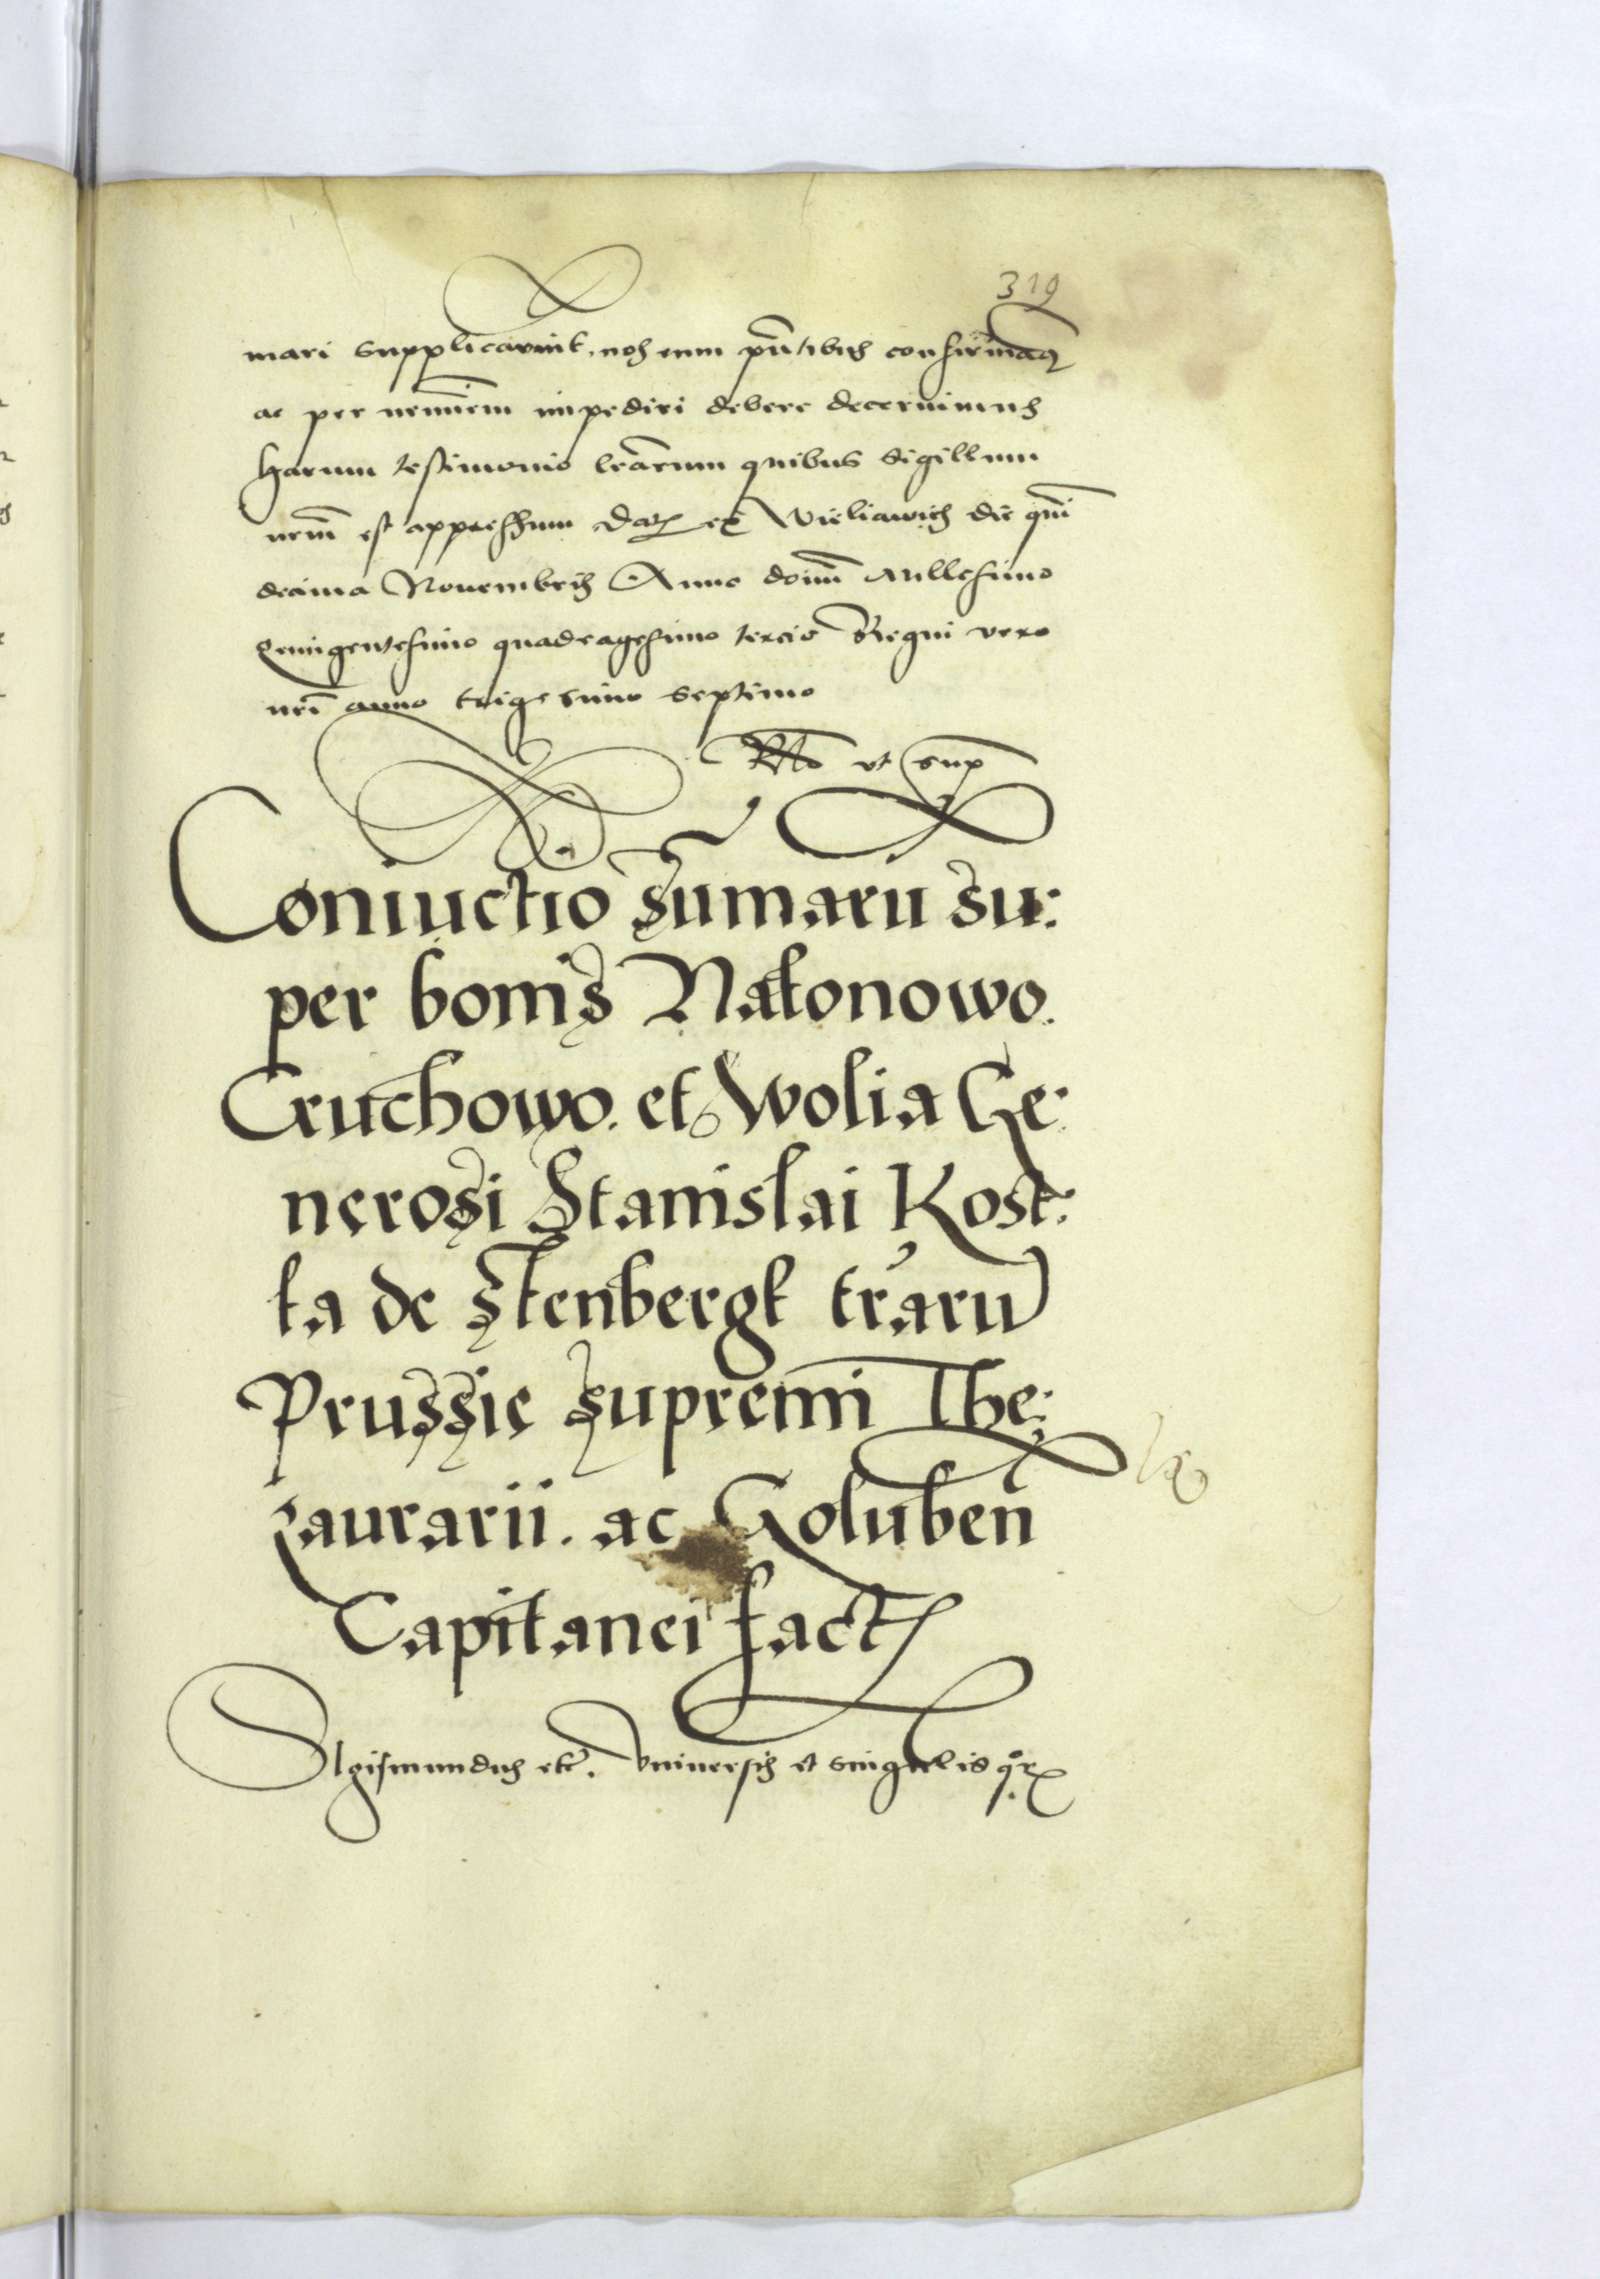 319
mari supplicavit. nos eum pn̄tibus confirmamꝰ
ac per nemīem impediri debere decernimus
harum testimonio lr̄arum quibus sigillum
nr̄m est appressum Datꝭ ex Wieliawich die qnī
decima Novembris Anno domī Millesimo
quingentesimo quadragesimo tercio Regni vero
nr̄i anno trigesimo septimo
Rlō ut sup
Coniuctio sumarū su:
per bonis Natonowo.
Cruchowo. et Wolia Ge:
nerosi Stanislai Kost:
ka de Stenbergk tr̄arū
Prussie supremi The:
zaurarii. ac Goluben̄
Capitanei factꝭ
Sigismundus etc̄. Universis et singulis qoꝝ